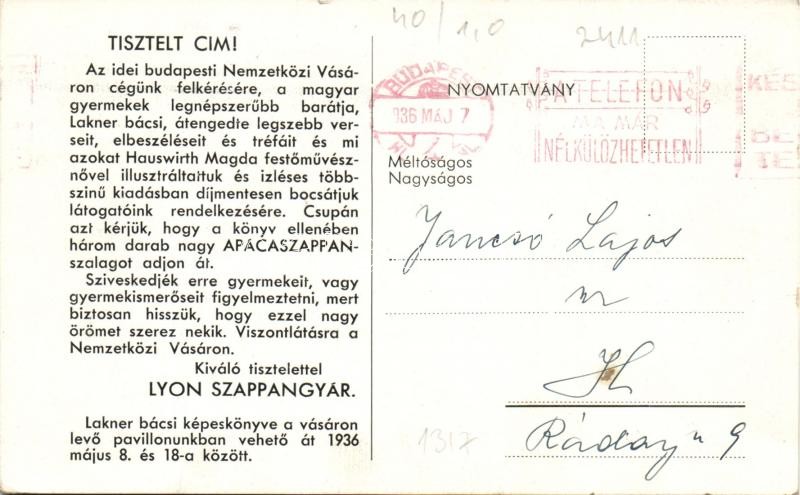 TISZTELT CIM!
Az idei budapesti Nemzetközi Vásá-
ron cégünk felkérésére, a magyar
gyermekek legnépszerűbb barátja,
Lakner bácsi, átengedte legszebb ver-
seit, elbeszéléseit és tréfáit és mi
azokat Hauswirth Magda festőművész-
nővel illusztráltattuk és izléses több-
szinű kiadásban díjmentesen bocsátjuk
látogatóink rendelkezésére. Csupán
azt kérjük, hogy a könyv ellenében
három darab nagy APÁCASZAPPAN-
szalagot adjon át.
Sziveskedjék erre gyermekeit, vagy
gyermekismerőseit figyelmeztetni, mert
biztosan hisszük, hogy ezzel nagy
örömet szerez nekik. Viszontlátásra a
Nemzetközi Vásáron.
Kiváló tisztelettel
LYON SZAPPANGYÁR.
Lakner bácsi képeskönyve a vásáron
levő pavillonunkban vehető át 1936
május 8. és 18-a között.
40/1,0
2411
BUDAPEST
936 MÁJ 7
NYOMTATVÁNY
A TELEFON
MA MÁR
NÉLKÜLÖZHETETLEN
KÉS
BE
TE
Méltóságos
Nagyságos
Jancsó Lajos
ur
Ráday u 9
1317